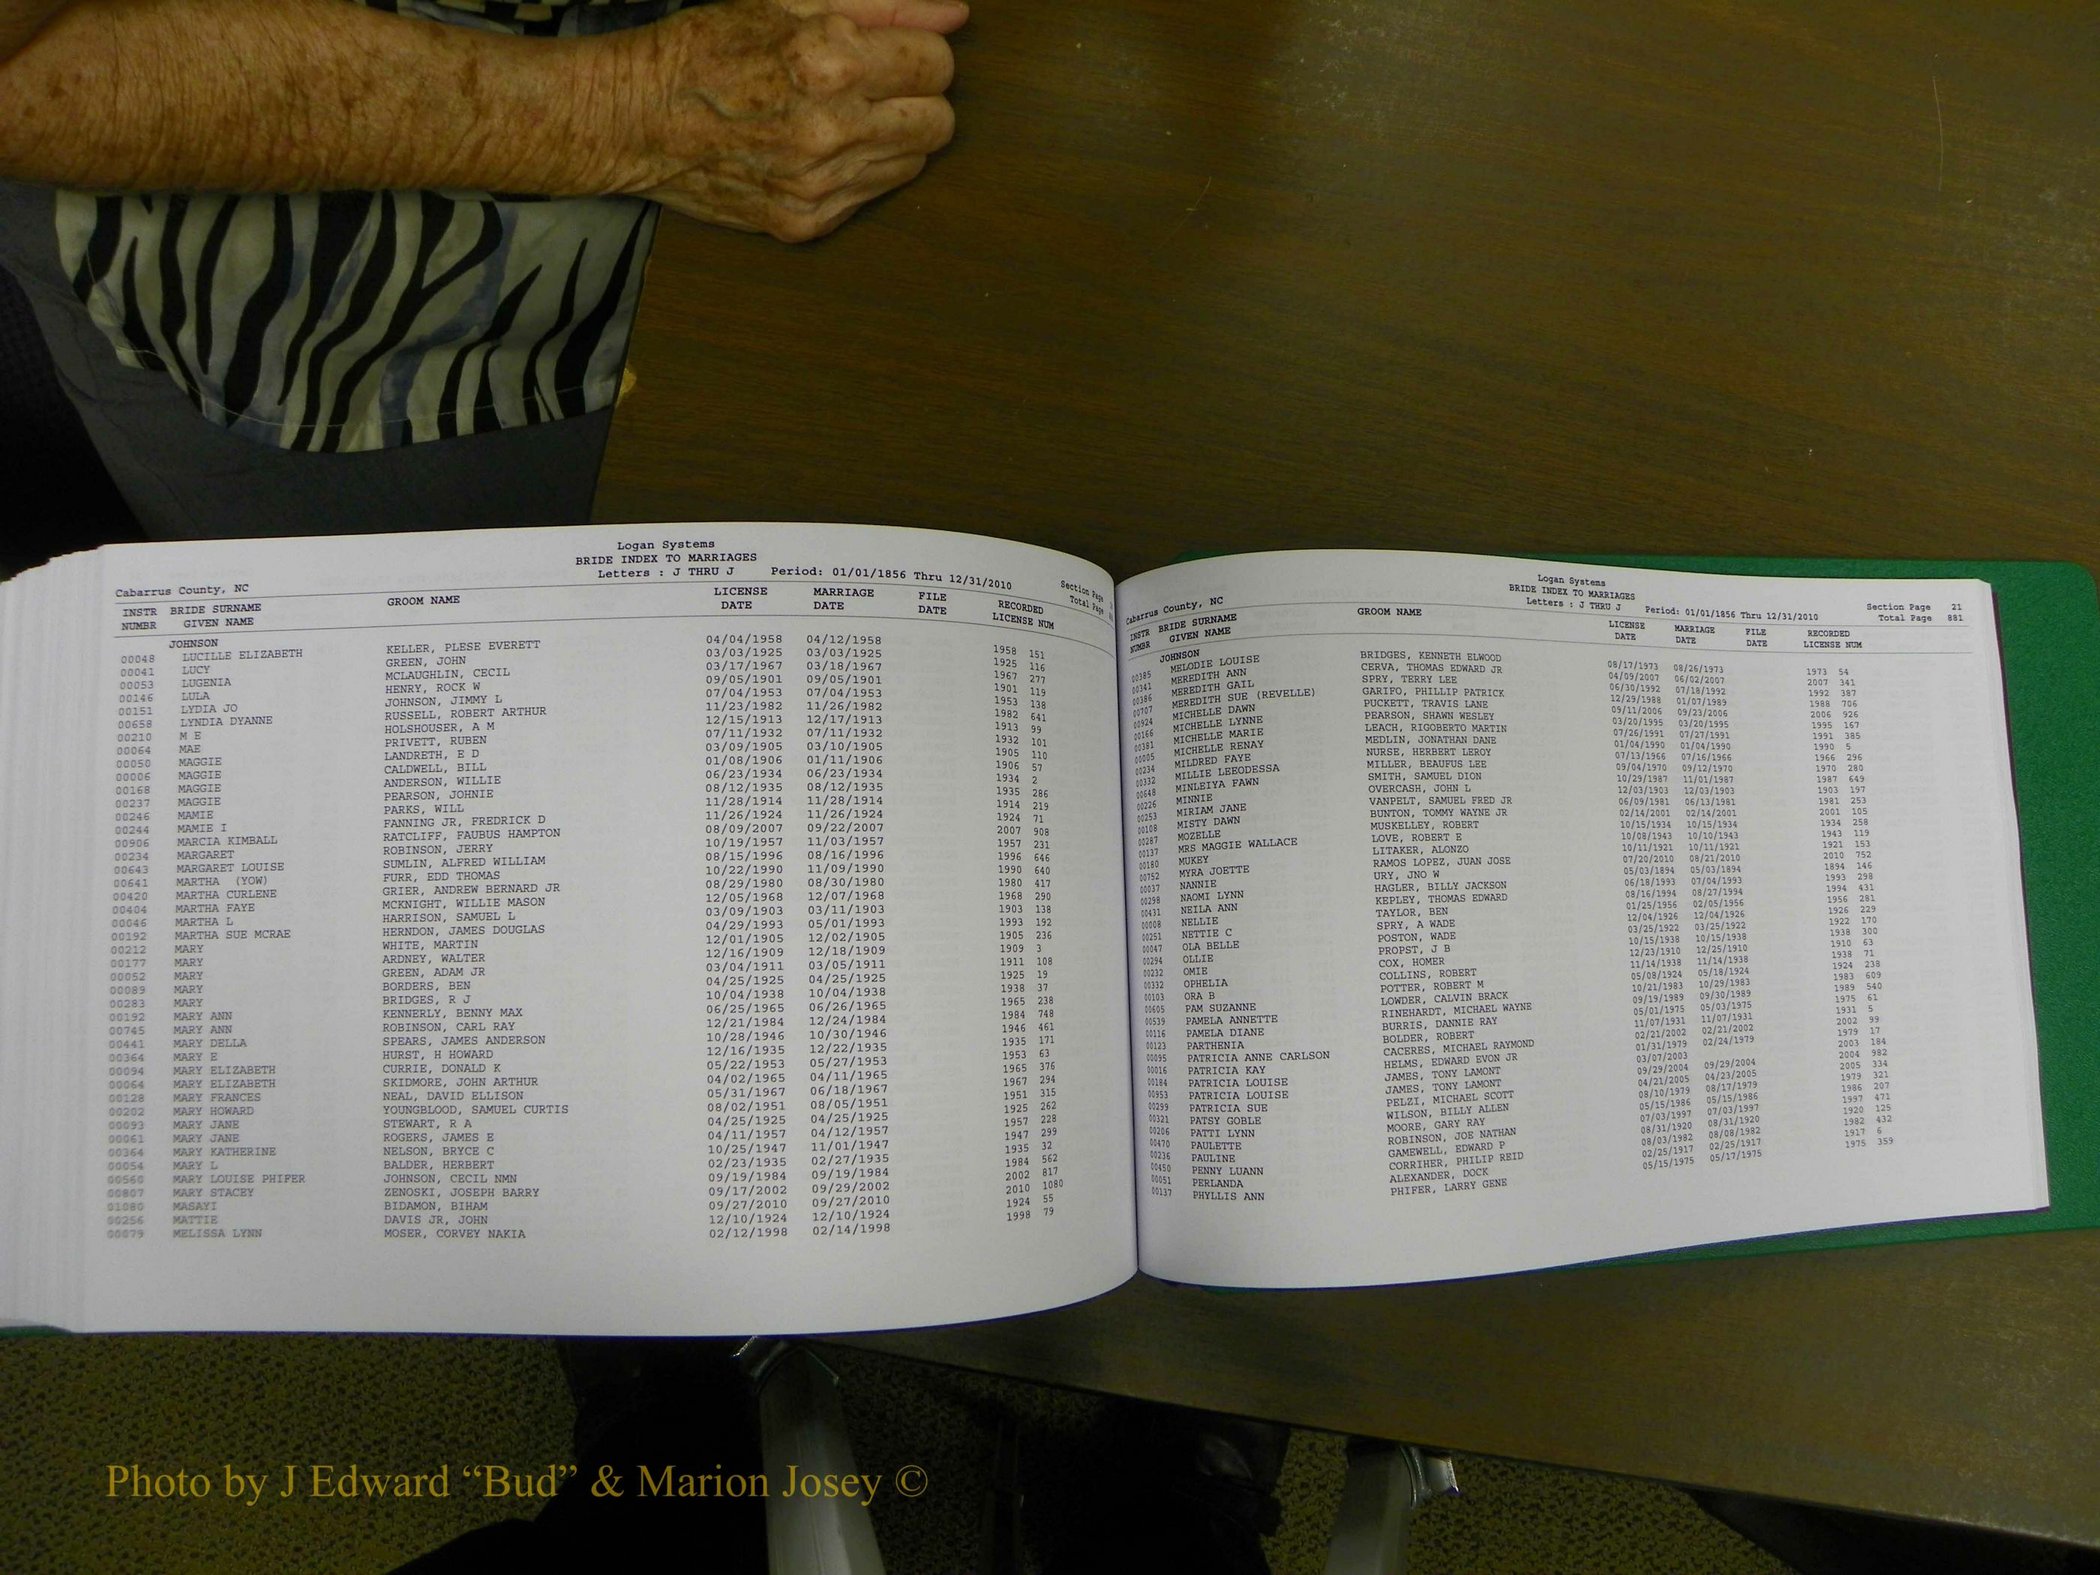 Logan Systems
BRIDE INDEX TO MARRIAGES
Letters : J THRU J Period: 01/01/1856 Thru 12/31/2010
Cabarrus County, NC Section Page
Total Page
INSTR BRIDE SURNAME GROOM NAME LICENSE MARRIAGE FILE RECORDED
NUMBR GIVEN NAME DATE DATE DATE LICENSE NUM
JOHNSON
00048 LUCILLE ELIZABETH KELLER, PLESE EVERETT 04/04/1958 04/12/1958 1958 151
00041 LUCY GREEN, JOHN 03/03/1925 03/03/1925 1925 116
00053 LUGENIA MCLAUGHLIN, CECIL 03/17/1967 03/18/1967 1967 277
00146 LULA HENRY, ROCK W 09/05/1901 09/05/1901 1901 119
00151 LYDIA JO JOHNSON, JIMMY L 07/04/1953 07/04/1953 1953 138
00658 LYNDIA DYANNE RUSSELL, ROBERT ARTHUR 11/23/1982 11/26/1982 1982 641
00210 M E HOLSHOUSER, A M 12/15/1913 12/17/1913 1913 99
00064 MAE PRIVETT, RUBEN 07/11/1932 07/11/1932 1932 101
00050 MAGGIE LANDRETH, E D 03/09/1905 03/10/1905 1905 110
00006 MAGGIE CALDWELL, BILL 01/08/1906 01/11/1906 1906 57
00168 MAGGIE ANDERSON, WILLIE 06/23/1934 06/23/1934 1934 2
00237 MAGGIE PEARSON, JOHNIE 08/12/1935 08/12/1935 1935 286
00246 MAMIE PARKS, WILL 11/28/1914 11/28/1914 1914 219
00244 MAMIE I FANNING JR, FREDRICK D 11/26/1924 11/26/1924 1924 71
00906 MARCIA KIMBALL RATCLIFF, FAUBUS HAMPTON 08/09/2007 09/22/2007 2007 908
00234 MARGARET ROBINSON, JERRY 10/19/1957 11/03/1957 1957 231
00643 MARGARET LOUISE SUMLIN, ALFRED WILLIAM 08/15/1996 08/16/1996 1996 646
00641 MARTHA (YOW) FURR, EDD THOMAS 10/22/1990 11/09/1990 1990 640
00420 MARTHA CURLENE GRIER, ANDREW BERNARD JR 08/29/1980 08/30/1980 1980 417
00404 MARTHA FAYE MCKNIGHT, WILLIE MASON 12/05/1968 12/07/1968 1968 290
00046 MARTHA L HARRISON, SAMUEL L 03/09/1903 03/11/1903 1903 138
00192 MARTHA SUE MCRAE HERNDON, JAMES DOUGLAS 04/29/1993 05/01/1993 1993 192
00212 MARY WHITE, MARTIN 12/01/1905 12/02/1905 1905 236
00177 MARY ARDNEY, WALTER 12/16/1909 12/18/1909 1909 3
00052 MARY GREEN, ADAM JR 03/04/1911 03/05/1911 1911 108
00089 MARY BORDERS, BEN 04/25/1925 04/25/1925 1925 19
00283 MARY BRIDGES, R J 10/04/1938 10/04/1938 1938 37
00192 MARY ANN KENNERLY, BENNY MAX 06/25/1965 06/26/1965 1965 238
00745 MARY ANN ROBINSON, CARL RAY 12/21/1984 12/24/1984 1984 748
00441 MARY DELLA SPEARS, JAMES ANDERSON 10/28/1946 10/30/1946 1946 461
00364 MARY E HURST, H HOWARD 12/16/1935 12/22/1935 1935 171
00094 MARY ELIZABETH CURRIE, DONALD K 05/22/1953 05/27/1953 1953 63
00064 MARY ELIZABETH SKIDMORE, JOHN ARTHUR 04/02/1965 04/11/1965 1965 376
00128 MARY FRANCES NEAL, DAVID ELLISON 05/31/1967 06/18/1967 1967 294
00202 MARY HOWARD YOUNGBLOOD, SAMUEL CURTIS 08/02/1951 08/05/1951 1951 315
00093 MARY JANE STEWART, R A 04/25/1925 04/25/1925 1925 262
00061 MARY JANE ROGERS, JAMES E 04/11/1957 04/12/1957 1957 228
00364 MARY KATHERINE NELSON, BRYCE C 10/25/1947 11/01/1947 1947 299
00054 MARY L BALDER, HERBERT 02/23/1935 02/27/1935 1935 32
00560 MARY LOUISE PHIFER JOHNSON, CECIL NMN 09/19/1984 09/19/1984 1984 562
00807 MARY STACEY ZENOSKI, JOSEPH BARRY 09/17/2002 09/29/2002 2002 817
01080 MASAYI BIDAMON, BIHAM 09/27/2010 09/27/2010 2010 1080
00256 MATTIE DAVIS JR, JOHN 12/10/1924 12/10/1924 1924 55
00079 MELISSA LYNN MOSER, CORVEY NAKIA 02/12/1998 02/14/1998 1998 79
Logan Systems
BRIDE INDEX TO MARRIAGES
Letters : J THRU J Period: 01/01/1856 Thru 12/31/2010
Cabarrus County, NC Section Page 21
Total Page 881
INSTR BRIDE SURNAME GROOM NAME LICENSE MARRIAGE FILE RECORDED
NUMBR GIVEN NAME DATE DATE DATE LICENSE NUM
JOHNSON
00385 MELODIE LOUISE BRIDGES, KENNETH ELWOOD 08/17/1973 08/26/1973 1973 54
00341 MEREDITH ANN CERVA, THOMAS EDWARD JR 04/09/2007 06/02/2007 2007 341
00386 MEREDITH GAIL SPRY, TERRY LEE 06/30/1992 07/18/1992 1992 387
00707 MEREDITH SUE (REVELLE) GARIFO, PHILLIP PATRICK 12/29/1988 01/07/1989 1988 706
00924 MICHELLE DAWN PUCKETT, TRAVIS LANE 09/11/2006 09/23/2006 2006 926
00166 MICHELLE LYNNE PEARSON, SHAWN WESLEY 03/20/1995 03/20/1995 1995 167
00381 MICHELLE MARIE LEACH, RIGOBERTO MARTIN 07/26/1991 07/27/1991 1991 385
00005 MICHELLE RENAY MEDLIN, JONATHAN DANE 01/04/1990 01/04/1990 1990 5
00234 MILDRED FAYE NURSE, HERBERT LEROY 07/13/1966 07/16/1966 1966 296
00332 MILLIE LEEODESSA MILLER, BEAUFUS LEE 09/04/1970 09/12/1970 1970 280
00648 MINLEIYA FAWN SMITH, SAMUEL DION 10/29/1987 11/01/1987 1987 649
00226 MINNIE OVERCASH, JOHN L 12/03/1903 12/03/1903 1903 197
00253 MIRIAM JANE VANPELT, SAMUEL FRED JR 06/09/1981 06/13/1981 1981 253
00108 MISTY DAWN BUNTON, TOMMY WAYNE JR 02/14/2001 02/14/2001 2001 105
00287 MOZELLE MUSKELLEY, ROBERT 10/15/1934 10/15/1934 1934 258
00137 MRS MAGGIE WALLACE LOVE, ROBERT E 10/08/1943 10/10/1943 1943 119
00180 MUKEY LITAKER, ALONZO 10/11/1921 10/11/1921 1921 153
00752 MYRA JOETTE RAMOS LOPEZ, JUAN JOSE 07/20/2010 08/21/2010 2010 752
00037 NANNIE URY, JNO W 05/03/1894 05/03/1894 1894 146
00298 NAOMI LYNN HAGLER, BILLY JACKSON 06/18/1993 07/04/1993 1993 298
00431 NEILA ANN KEPLEY, THOMAS EDWARD 08/16/1994 08/27/1994 1994 431
00008 NELLIE TAYLOR, BEN 01/25/1956 02/05/1956 1956 281
00251 NETTIE C SPRY, A WADE 12/04/1926 12/04/1926 1926 229
00047 OLA BELLE POSTON, WADE 03/25/1922 03/25/1922 1922 170
00294 OLLIE PROPST, J B 10/15/1938 10/15/1938 1938 300
00232 OMIE COX, HOMER 12/23/1910 12/25/1910 1910 63
00332 OPHELIA COLLINS, ROBERT 11/14/1938 11/14/1938 1938 71
00103 ORA B POTTER, ROBERT M 05/08/1924 05/18/1924 1924 238
00605 PAM SUZANNE LOWDER, CALVIN BRACK 10/21/1983 10/29/1983 1983 609
00539 PAMELA ANNETTE RINEHARDT, MICHAEL WAYNE 09/19/1989 09/30/1989 1989 540
00116 PAMELA DIANE BURRIS, DANNIE RAY 05/01/1975 05/03/1975 1975 61
00123 PARTHENIA BOLDER, ROBERT 11/07/1931 11/07/1931 1931 5
00095 PATRICIA ANNE CARLSON CACERES, MICHAEL RAYMOND 02/21/2002 02/21/2002 2002 99
00016 PATRICIA KAY HELMS, EDWARD EVON JR 01/31/1979 02/24/1979 1979 17
00184 PATRICIA LOUISE JAMES, TONY LAMONT 03/07/2003 2003 184
00953 PATRICIA LOUISE JAMES, TONY LAMONT 09/29/2004 09/29/2004 2004 982
00299 PATRICIA SUE PELZI, MICHAEL SCOTT 04/21/2005 04/23/2005 2005 334
00321 PATSY GOBLE WILSON, BILLY ALLEN 08/10/1979 08/17/1979 1979 321
00206 PATTI LYNN MOORE, GARY RAY 05/15/1986 05/15/1986 1986 207
00470 PAULETTE ROBINSON, JOE NATHAN 07/03/1997 07/03/1997 1997 471
00236 PAULINE GAMEWELL, EDWARD P 08/31/1920 08/31/1920 1920 125
00450 PENNY LUANN CORRIHER, PHILIP REID 08/03/1982 08/08/1982 1982 432
00051 PERLANDA ALEXANDER, DOCK 02/25/1917 02/25/1917 1917 6
00137 PHYLLIS ANN PHIFER, LARRY GENE 05/15/1975 05/17/1975 1975 359
Photo by J Edward “Bud” & Marion Josey ©